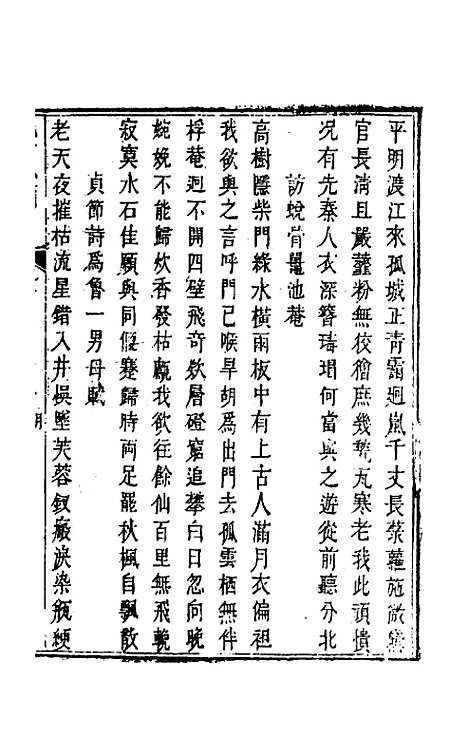 平明渡江來孤城正青靄迴嵐千丈長蔡蘿施
官長淸且嚴虀粉無狡獪庶幾瓦寒老我此頑憒
況有先秦人衣深簪瑇瑁何當與之遊從前聽分北
訪蛻骨龕池菴
高樹隱柴門綠水橫兩板中有上古人滿月衣偏袒
我欲與之言呼門已喉旱胡爲出門去孤雲栖無伴
桴菴迴不開四壁飛奇欵層磴窮追攀白日忽向晚
婉娩不能歸炊香發枯甗我欲往餘仙百里無飛輓
寂寞水石佳願與同偃蹇歸時兩足罷秋楓自飄散
貞節詩爲魯一男母賦
老天夜摧枯流星錯入井悞墮芙蓉釵淚染瓶綆